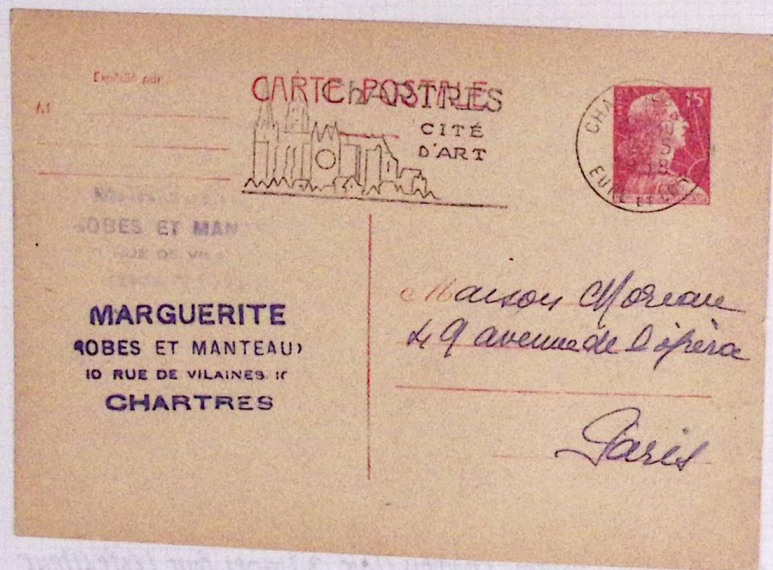 Expédié par
M
CARTE POSTALE
ChARTRES
CITÉ
D'ART
15
EURE ET LOIR
ROBES ET MAN
RUE DE VI
MARGUERITE
ROBES ET MANTEAU
10 RUE DE VILAINES. 1
CHARTRES
Maison Moreau
49 avenue de l'opéra
Paris